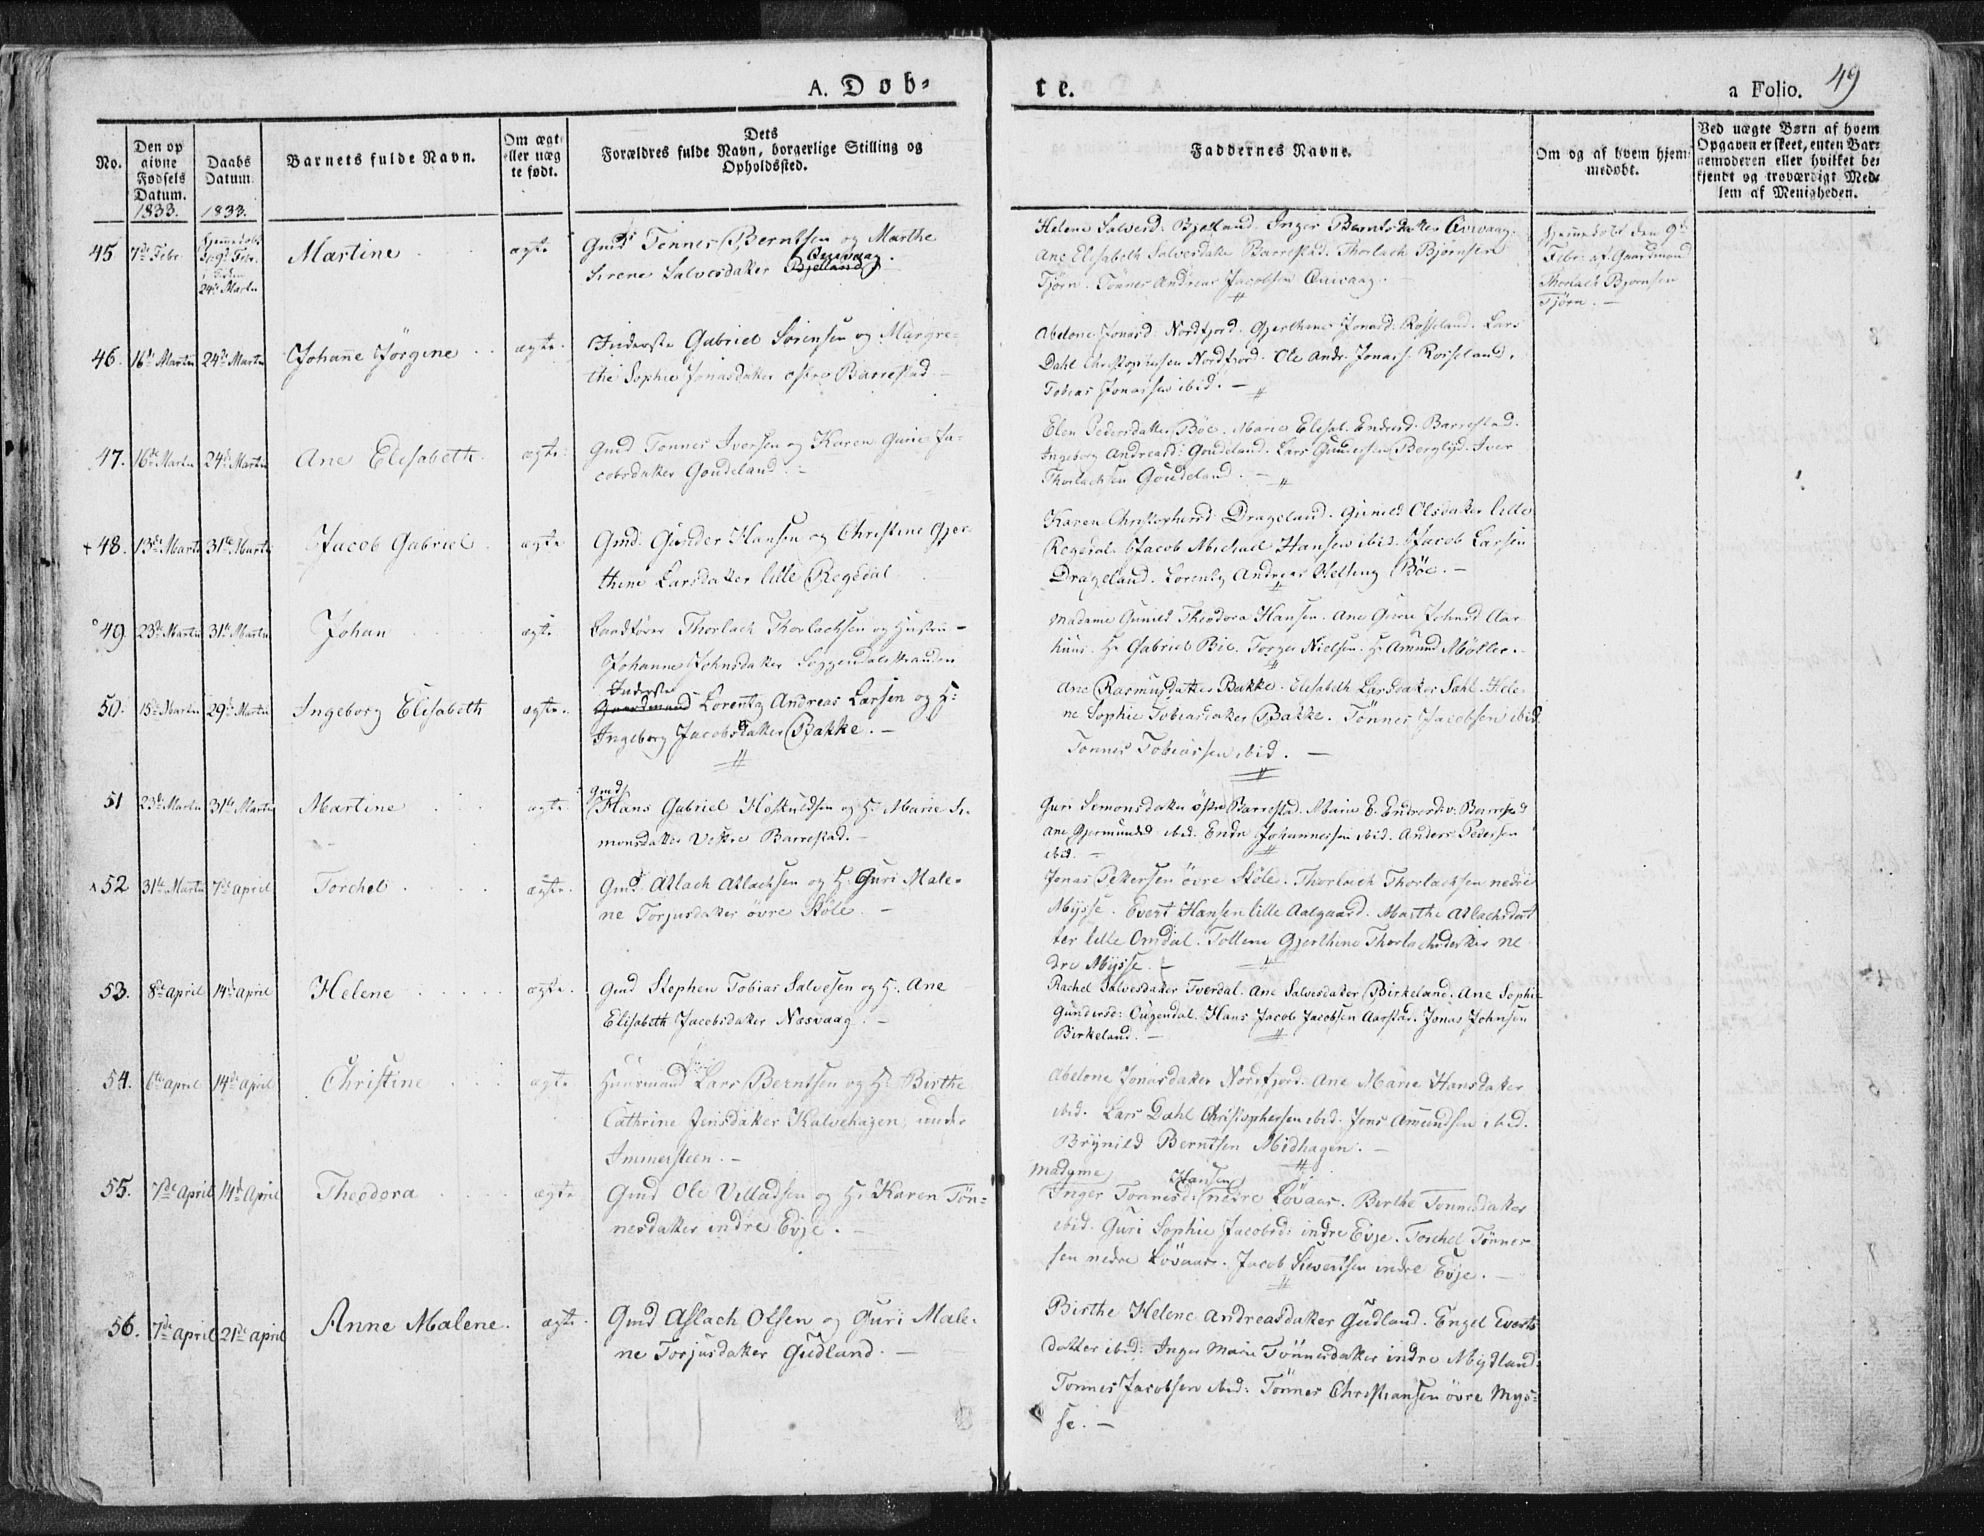 A. Døb-
te.
a Folio. 49
No.
Den opgivne Fødsels Datum. 1833.
Daabs Datum. 1833.
Barnets fulde Navn.
Om ægte eller uægte født.
Dets Forældres fulde Navn, borgerlige Stilling og Opholdssted.
Faddernes Navne.
Om og af hvem hjemmedøbt.
Ved uægte Børn af hvem Opgaven er skeet, enten Barnemoderen eller hvilket bekjendt og troværdigt Medlem af Menigheden.
45 7de Febr. 9de Febr. 24de Martii Martine ægte Gmd Tønnes Berntsen og Marthe
Serene Salvesdatter Bjelland Qvivaag.
Helene Salvesd. Bjelland. Inger Berntsdatter Qvivaag.
Ane Elisabeth Salvesdatter Barrestad. Thorlach Bjørnsen
Tjørn. Tønnes Andreas Jacobsen Qvivaag.
Hjemmedøbt den 9de
Febr. af Gaardmand
Thorlach Bjørnsen
Tjørn. -
46. 16de Martii 24de Martii Johanne Jørgine ægte. Inderste Gabriel Sørensen og Margre-
the Sophie Jonasdatter østre Barrestad. -
Abelone Jonasd. Nordfjord. Gjerthine Jonasd. Rosseland. Lars
Dahl Christophersen Nordfjord. Ole Andr. Jonass. Rosseland.
Tobias Jonassen ibid. -
47. 16de Martii 24de Martii Ane Elisabeth. ægte. Gmd Tønnes Iversen og Karen Gurie Ja-
cobsdatter Goudeland. -
Elen Pedersdatter Bøe. Marie Elisab. Endresd. Barrestad.
Ingeborg Andreasd: Goudeland. Lars Gundersen Berglyd. Iver
Thorlachsen Goudeland. -
+48. 13de Martii 31te Martii Jacob Gabriel ægte Gmd. Gunder Hansen og Christine Gjer-
thine Larsdatter lille Regedal
Karen Christophersd. Drageland. Gunild Olsdatter lille
Regedal. Jacob Michael Hansen ibid. Jacob Larsen
Drageland. Lorentz Andreas Helting Bøe. -
49. 23de Martii 31te Martii Johan ægte Landfører Thorlach Thorlachsen og Hustru -
Johanne Johnsdatter Soggendalsstranden
Madame Gunild Theodora Hansen. Ane Gurie Johnsd. Aar-
huus. Hr Gabriel Bie. Torger Nielsen. Hr Amund Møller. -
50. 15de Martii 29de Martii Ingeborg Elisabeth ægte. Inderste
Gaardmand Lorentz Andreas Larsen og H:
Ingeborg Jacobsdatter Bakke. -
Ane Rasmusdatter Bakke. Elisabeth Larsdatter Sæhl. Hele-
ne Sophie Tobiasdatter Bakke. Tønnes Jacobsen ibid.
Tønnes Tobiassen ibid. -
51 23de Martii 31te Martii Martine ægte. Gmd
Hans Gabriel Hoskuldsen og H. Marie Si-
monsdatter Vestre Barrestad. -
Guri Simonsdatter østre Barrestad. Marie E. Endresd. v. Barrestad
Ane Gjermundsd ibid. Endre Johannessen ibid. Anders Pedersen
ibid. -
52 31te Martii 7de April Torchel ægte. Gmd Atlach Atlachsen og H. Guri Male-
ne Torjusdatter øvre Støle. -
Jonas Pettersen øvre Støle. Thorlach Thorlachsen nedre
Mysse. Evert Hansen lille Aalgaard. Marthe Atlachsdat-
ter lille Omdal. Tollene Gjerthine Thorlachsdatter ne-
dre Mysse. -
53. 8de April 14de April Helene ægte. Gmd Stephen Tobias Salvesen og H. Ane
Elisabeth Jacobsdatter Næsvaag. -
Rachel Salvesdatter Tverdal. Ane Salvesdatter Birkeland. Ane Sophie
Gundersd: Ougendal. Hans Jacob Jacobsen Aarstad. Jonas Johnsen
Birkeland. -
54. 6te April 14de April Christine ægte Huusmand Lars Berntsen og H. Birthe
Cathrine Jensdatter Kalvehagen, under
Immersteen. -
Abelone Jonasdatter Nordfjord. Ane Marie Hansdatter
ibid. Lars Dahl Christophersen ibid. Jens Amundsen ibid.
Brynild Berntsen Midhagen. -
55. 7de April 14de April Theodora ægte Gmd Ole Villadsen og H. Karen Tøn-
nesdatter indre Evje. -
Madame Hansen
Inger Tønnesd. nedre Løvaas. Birthe Tønnesdatter
ibid. Guri Sophie Jacobsd: indre Evje. Torchel Tønnes-
sen nedre Løvaas. Jacob Sivertsen indre Evje. -
56. 7de April 21de April Anne Malene. ægte. Gmd Aslach Olsen og Guri Male-
ne Torjusdatter Gudland. -
Birthe Helene Andreasdatter Gudland. Engel Everts-
datter ibid: Inger Marie Tønnesdatter indre Mydland:
Tønnes Jacobsen ibid: Tønnes Christiansen øvre Mys-
se. -